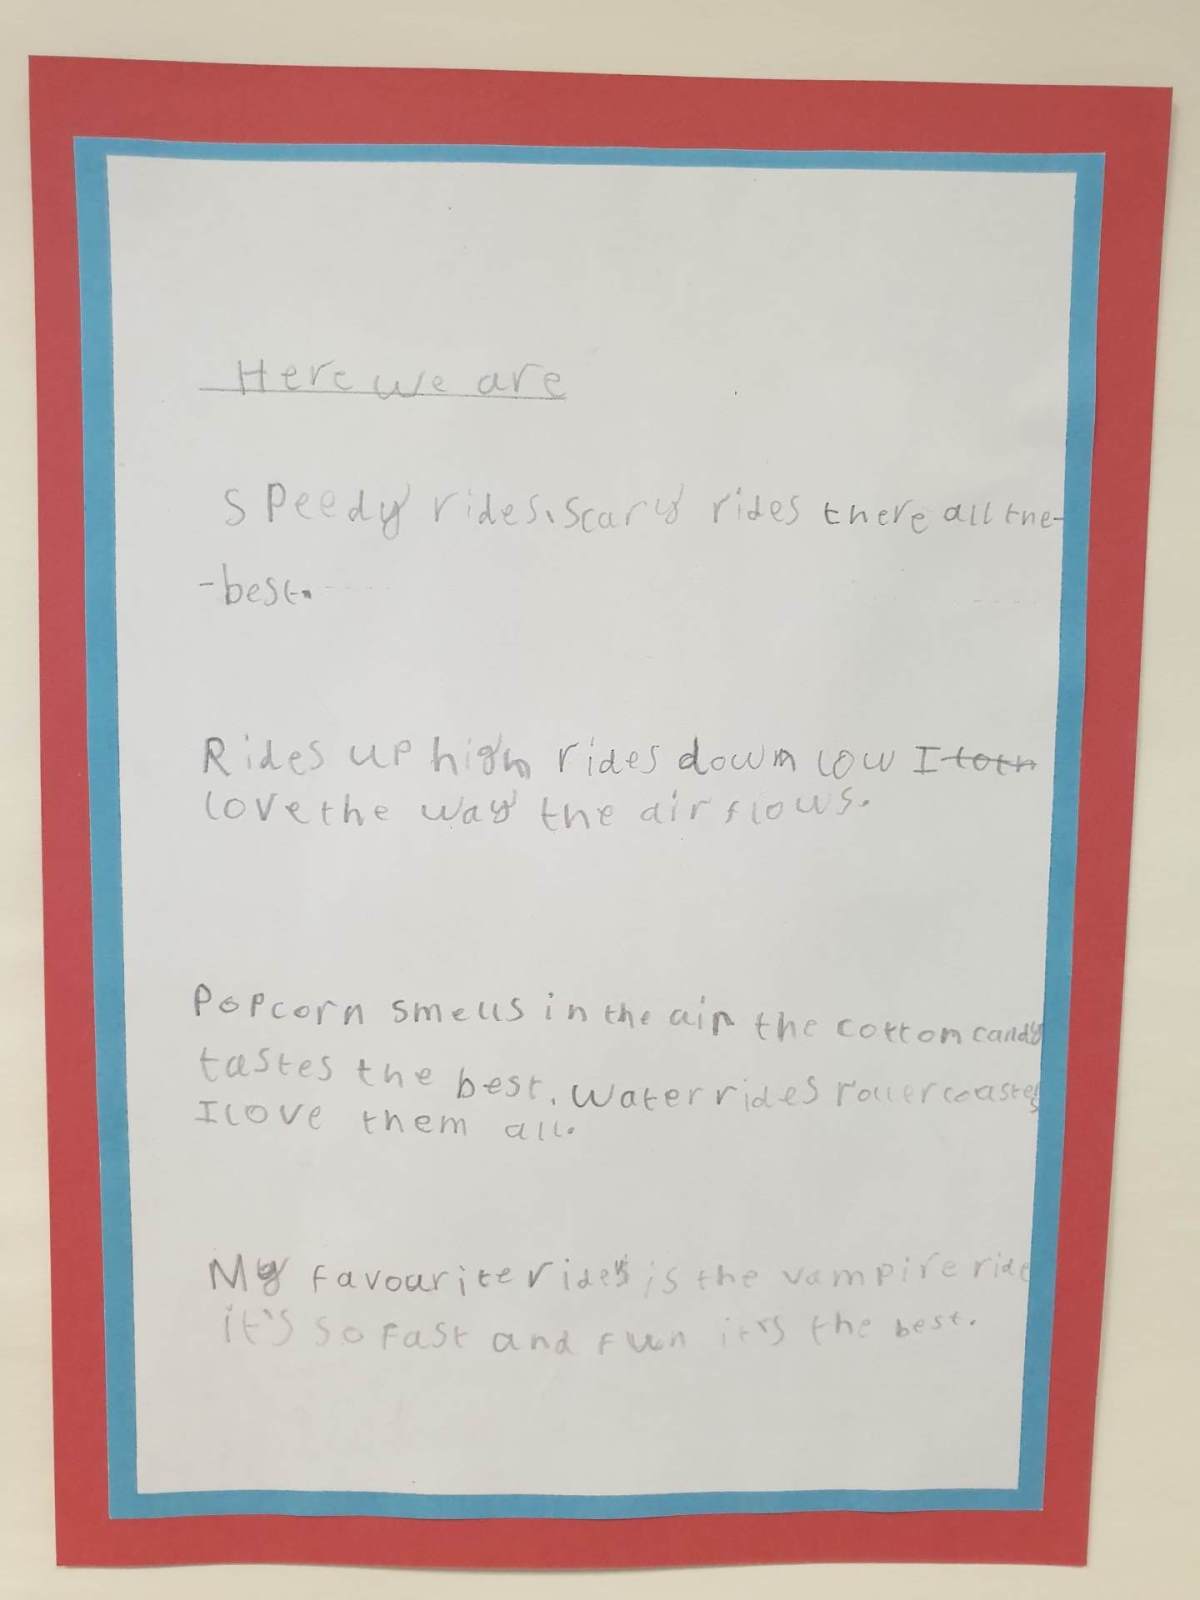 Here we are
Speedy rides, scary rides there all the-
-best.
Rides up high rides down low I
love the way the air flows.
Popcorn smells in the air the cottom candy
tastes the best. Water rides rollercoasters
I love them all.
My favourite rides is the vampire ride
it's so fast and fun it's the best.